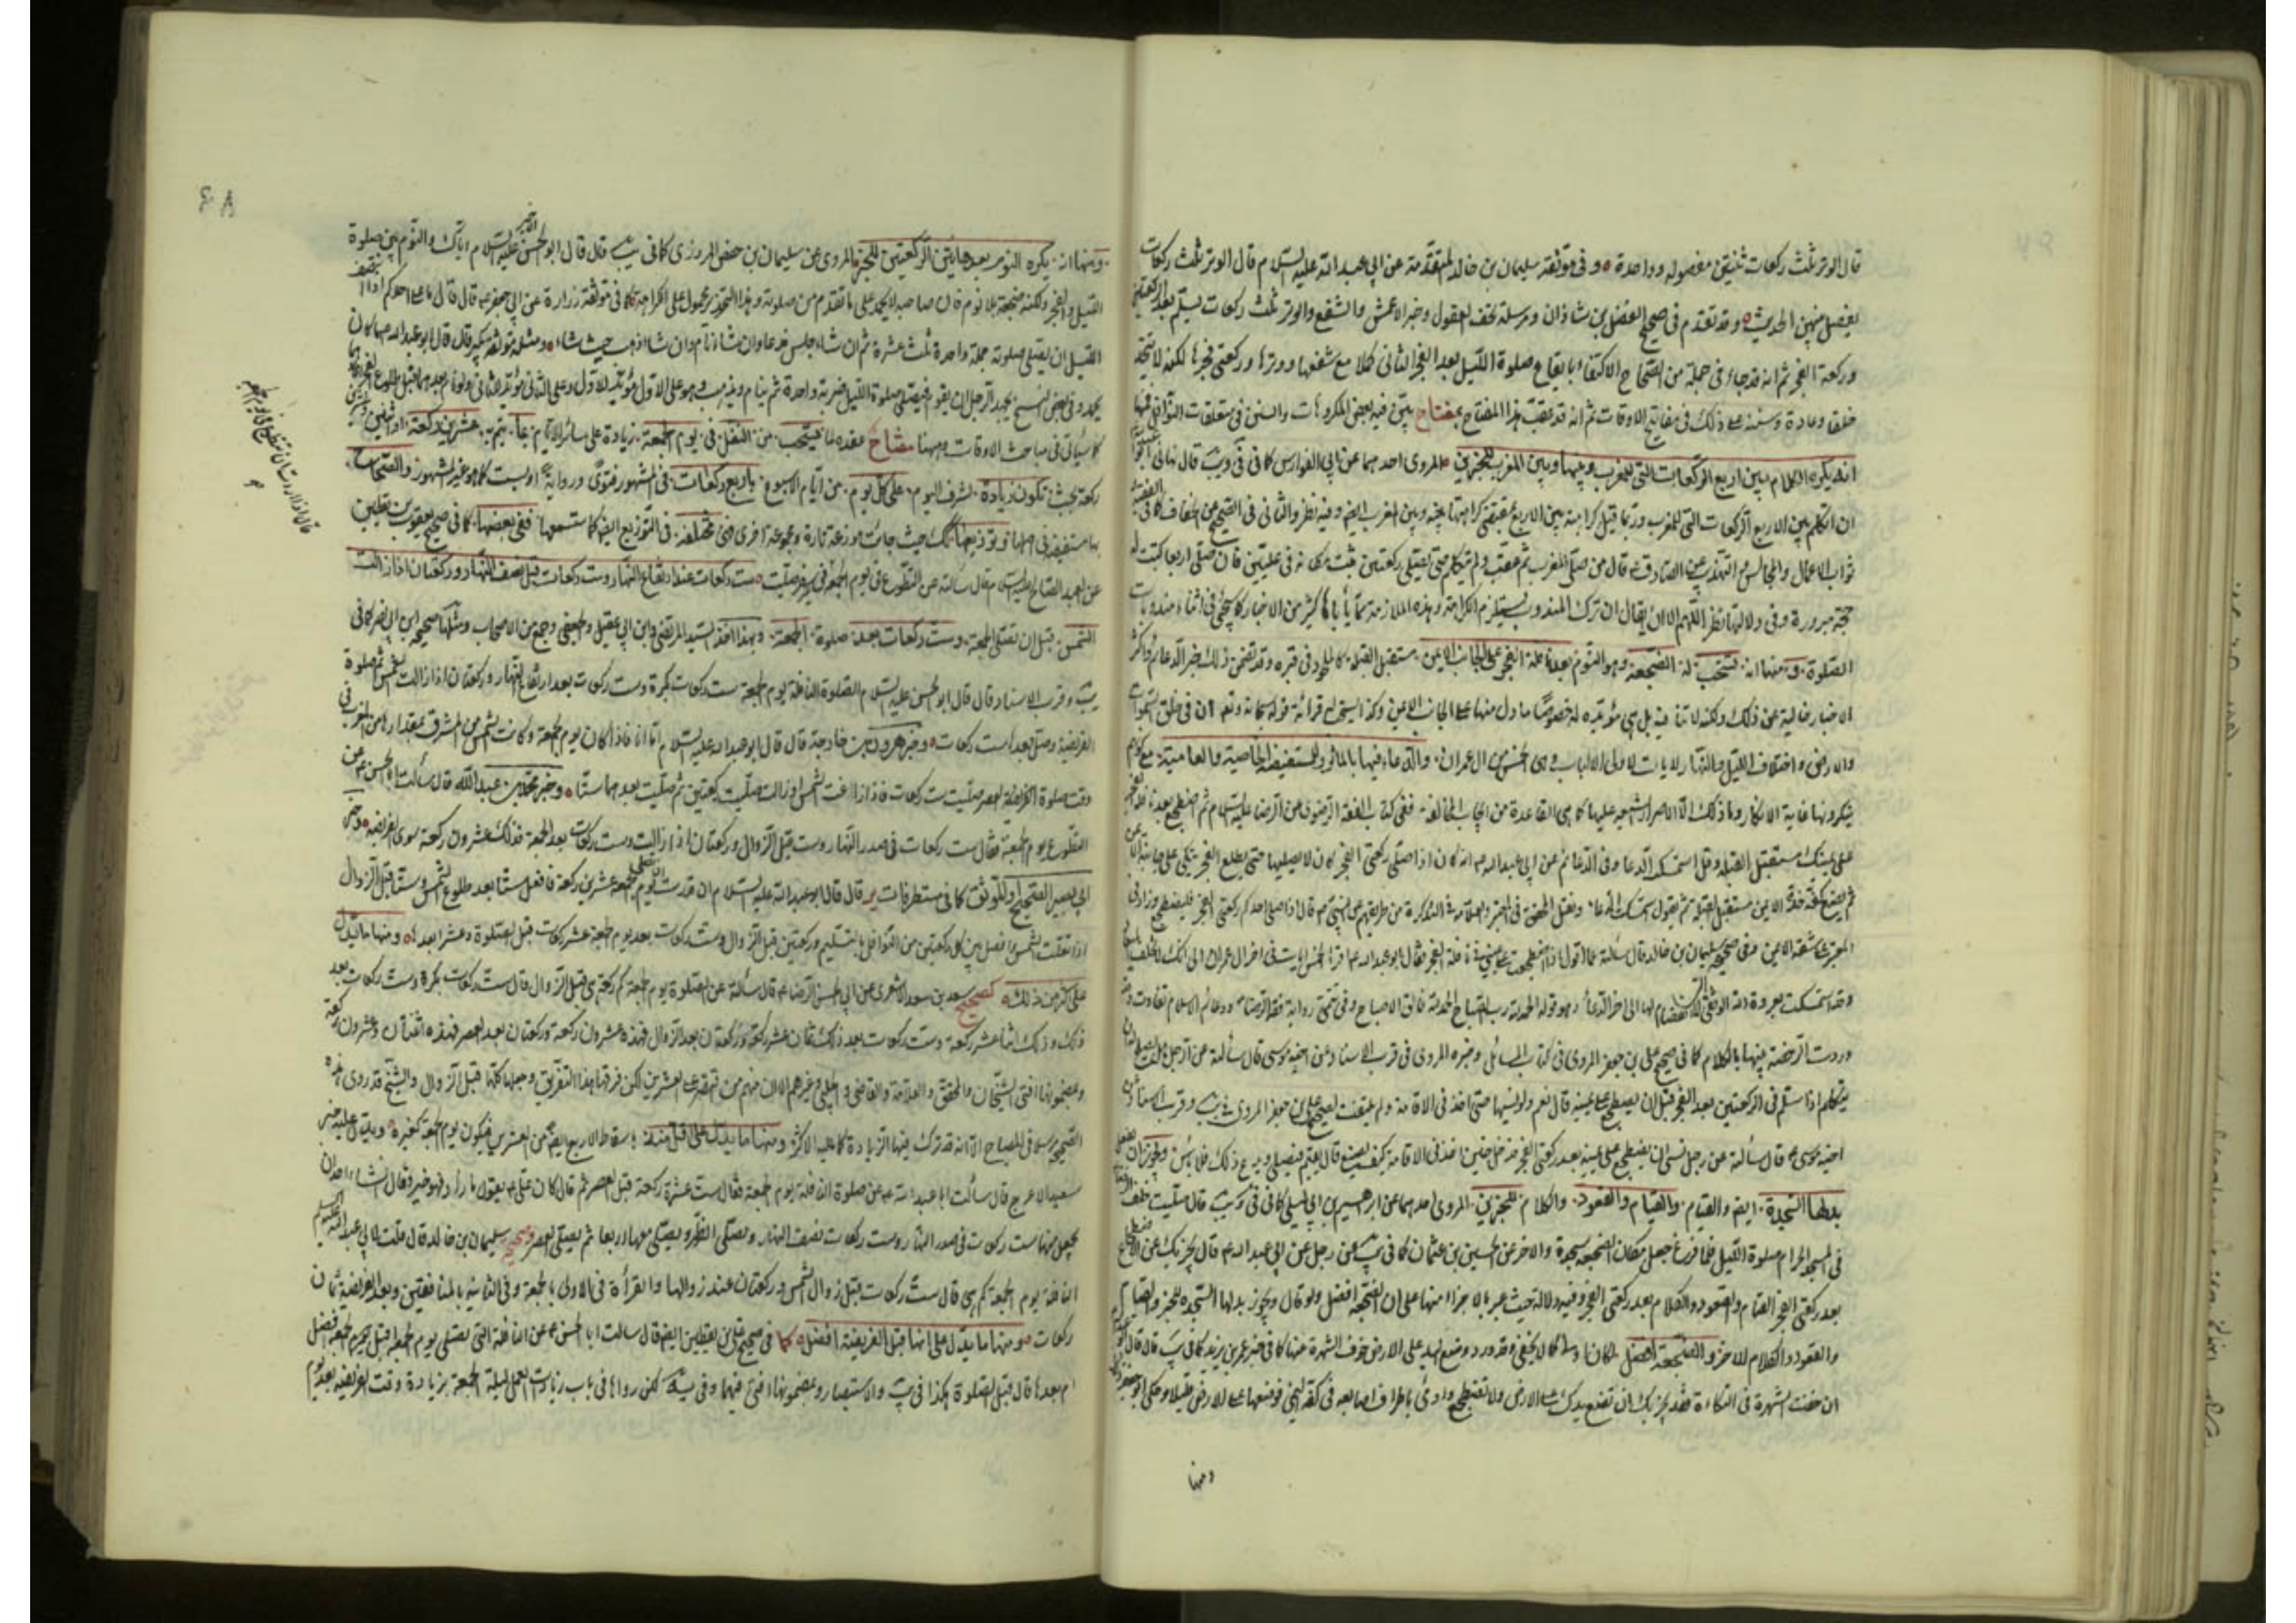 قال الوتر ثلث ركعات ثنتين مفصوله وواحدة وفى موثقة سليمان بن خالد المتقدمة عن ابي عبد الله عليه السلام قال الوتر ثلث ركعات
يفصل بينهن الحديث وقد تقدم فى صحيح الفضل بن شاذان ومرسلة تحف العقول وخبر الاعمش والشفع والوتر ثلث ركعات يسلم بعد الركعتين
وركعة الفجر ثم انه قد جاء فى جملة من الصحاح الاكتفاء بايقاع صلوة الليل بعد الفجر الثانى كملا مع شفعها ووترها وركعتى فجرها لكنه لا يتخذ
خلقا وعادة وسنة على ذلك فى مفاتيح الاوقات ثم انه قد عقب هذا المفتاح بمفتاح بين فيه بعض المكروهات والسنن فى متعلقات النوافل فمنها
انه يكره الكلام بين اربع الركعات التى للمغرب وبينها وبين المغرب للخبرين المروى احدهما عن ابي الفوارس كما فى فى ويب قال نهانى ابو
ان اتكلم بين الاربع الركعات التى للمغرب وربما قيل كراهية بين الاربع يقتضى كراهيتها بينه وبين المغرب ايضا وفيه نظر والثانى فى الصحيح عن الخفاف كما فى الفقيه
ثواب الاعمال والمجالس والتهذيب عن الصادق قال من صلى المغرب ثم عقب ولم يتكلم حتى يصلى ركعتين ثبت له فى عليين فان صلى اربعا كتبت له
حجة مبرورة وفى دلالتها نظر اللهم الا ان يقال ان ترك المندوب يستلزم الكراهة وهذه الملازمة مما يأباها كثير من الاخبار كما سيجئ فى اثناء مندوبات
الصلوة ومنها انه تستحب له الضجعة وهو النوم بعد نافلة الفجر على الجانب الايمن مستقبل القبلة كالملحود فى قبره وقد تضمن ذلك خبر الدعائم واكثر
الاخبار خالية عن ذلك ولكنه لا تنافيه بل هى مؤيده له خصوصا ما دل منها على الجانب الايمن وكذا يستحب له قرائة قوله سبحانه وتعالى ان فى خلق السموات
والارض واختلاف الليل والنهار لايات لاولى الالباب وهى الخمس من ال عمران والدعاء فيها بالماثور للمستفيضة الخاصية والعامية مع
ينكرونها غاية الانكار وما ذلك الا لاصرار الشيعة عليها كما هى القاعدة من ايجاب المخالفة ففى كتاب الفقه الرضوى عن الرضا عليه السلام ثم اضطجع بعد نافلة الفجر
على يمينك مستقبل القبلة وقل استمسك الدعا وفى الدعائم عن ابي عبد الله ع انه كان اذا صلى ركعتى الفجر كان لا يصليهما حتى يطلع الفجر يتكى على جانبه الايمن
ثم يضع كفه خده الايمن مستقبل القبلة ثم يقول استمسكت الدعاء ونقل المحقق فى المعتبر والعلامة فى التذكرة من طريقهم عن النبى ص قال اذا صلى احدكم ركعتى الفجر فليضطجع وزاد فى
المعتبر على شقه الايمن وفى صحيح سليمان بن خالد قال سألته عما اقول اذا اضطجعت على يمينى بعد نافلة الفجر فقال ابو عبد الله ع اقرأ الخمس ايات فى اخر ال عمران الى انك لا تخلف
وقد استمسكت بعروة الله الوثقى لا انفصام لها الى اخر الدعاء وهو قوله الحمد لله رب الصباح الحمد لله فالق الاصباح وفى تتمة رواية فقه الرضا ودعائم الاسلام تفاوت
وردت الرخصة بينها بالكلام كما فى صحيح على بن جعفر المروى فى كتاب المسائل وخبره المروى فى قرب الاسناد عن اخيه موسى قال سألته عن الرجل
يتكلم اذا سلم فى الركعتين بعد الفجر قبل ان يضطجع على يمينه قال نعم ولو نسيها حتى اخذ فى الاقامة ولم يلتفت لصحيح على بن جعفر المروى فى يب وقرب الاسناد
اخيه موسى ع قال سألته عن رجل نسى ان يضطجع على يمينه بعد ركعتى الفجر فذكر حين اخذ فى الاقامة كيف يصنع قال يقيم ويصلى ويدع ذلك فلا بأس ويجوز ان
بدلها السجدة ايضا والقيام والقيام والقعود والكلام للخبرين المروى احدهما عن ابراهيم بن ابي البلاد كما فى فى ويب قال صليت خلف
فى المسجد الحرام صلوة الليل فلما فرغ جعل مكان الضجعة سجدة والاخر عن الحسين بن عثمان كما فى يب عن رجل عن ابي عبد الله ع قال يجزيك عن الاضطجاع
بعد ركعتى الفجر القيام والقعود والكلام بعد ركعتى الفجر وفيه دلالة حيث عبر بالاجزاء منها على ان الضجعة افضل ولو قال ويجوز بدلها السجدة للخبر والقيام
والقعود والكلام للاخر والضجعة افضل لكان اولى كما لا يخفى وقد ورد وضع اليد على الارض خوف الشهرة منها كما فى خبر عمر بن يزيد كما فى يب قال قال
ان خفت الشهرة فى التكاءة فقد يجزيك ان تضع يدك على الارض ولا تضطجع واومى باطراف اصابعه فى كفه اليمنى فوضعها على الارض قليلا وحكى ابو جعفر
ومنها
٤٨
ومنها انه يكره النوم بعد هاتين الركعتين للخبر المروى عن سليمان بن حفص المروزى كما فى يب قال قال ابو الحسن الاخير عليه السلام اياك والنوم بين صلوة
الليل والفجر ولكن ضجعة بلا نوم فان صاحبه لا يحمد على ما تقدم من صلوته وهذا التحذير محمول على الكراهة كما فى موثقة زرارة عن ابي جعفر ع قال قال ما على احدكم اذا انتصف
الليل ان يصلى صلوته جملة واحدة ثلث عشرة ثم ان شاء جلس فدعا وان شاء نام وان شاء ذهب حيث شاء ومثله موثقة بكير قال قال ابو عبد الله ع ما كان
يحمد وفى بعض النسخ يجهد الرجل ان يقوم فيصلى صلوة الليل ضربة واحدة ثم ينام ويذهب وهو على الاول مؤيد للاول وعلى الثانى مؤيد للثانى ولو نام بعدهما قبل طلوع الفجر
كما سيأتى فى مباحث الاوقات وههنا مفتاح عقده لما يستحب من النفل فى يوم الجمعة زيادة على سائر الايام بما يتم به عشرين ركعة او ثنتين وعشرين
ركعة بحيث تكون زيادة لشرف اليوم على كل يوم من ايام الاسبوع باربع ركعات فى المشهور فتوى ورواية او بست كما هو غير المشهور والصحاح
بها مستفيضة فى اصلها وتوزيعها لكن حيث جائت موزعة تارة ومجموعة اخرى فهى مختلفة فى التوزيع ايضا كما ستسمعها ففى بعضها كما فى صحيح يعقوب بن يقطين
عن العبد الصالح عليه السلام قال سألته عن التطوع فى يوم الجمعة فى سفر صليت ست ركعات عند ارتفاع النهار وست ركعات قبل نصف النهار وركعتان اذا زالت
الشمس قبل ان تصلى الجمعة وست ركعات بعد صلوة الجمعة وبهذا اخذ السيد المرتضى وابن ابي عقيل والجعفى وجمع من الاصحاب ومثلها صحيحة ابن ابي نصر كما فى
يب وقرب الاسناد قال قال ابو الحسن عليه السلام الصلوة النافلة يوم الجمعة ست ركعات بكرة وست ركعات بعد ارتفاع النهار وركعتان اذا زالت الشمس ثم صلوة
الفريضة وصل بعدها ست ركعات وخبر مراد بن خارجة قال قال ابو عبد الله عليه السلام اما انا فاذا كان يوم الجمعة وكانت الشمس من المشرق بمقدارها من المغرب فى
وقت صلوة العصر صليت ست ركعات فاذا زاغت الشمس او زالت صليت ركعتين ثم صليت بعدهما ستا وخبر محمد بن عبد الله قال سألت ابا الحسن ع عن
التطوع يوم الجمعة فقال ست ركعات فى صدر النهار وست قبل الزوال وركعتان اذا زالت وست ركعات بعد الجمعة فذلك عشرون ركعة سوى الفريضة وخبر
ابي بصير الصحيح او الموثق كما فى مستطرفات ير قال قال ابو عبد الله عليه السلام ان قدرت ان تصلى يوم الجمعة عشرين ركعة فافعل ستا بعد طلوع الشمس وستا قبل الزوال
اذا تعالت الشمس وافصل بين كل ركعتين من النوافل بالتسليم وركعتين قبل الزوال وست ركعات بعد يوم الجمعة عشر ركعات قبل الصلوة وعشرا بعدها ومنها ما يدل
على اكثر من ذلك كصحيح سعد بن سعد الاشعرى عن ابي الحسن الرضا ع قال سألته عن الصلوة يوم الجمعة كم ركعة هى قبل الزوال قال ست ركعات بكرة وست ركعات بعد
ذلك وذلك اثنتا عشر ركعة وست ركعات بعد ذلك ثمان عشر ركعة وركعتان بعد الزوال فهذه عشرون ركعة وركعتان بعد العصر فهذه اثنتان وعشرون ركعة
وبمضمونها افتى الشيخان والمحقق والعلامة والقاضى والحلى وغيرهم الا ان منهم من اقتصر على العشرين لكن فرقها هذا التفريق وجعلها كلها قبل الزوال والشيخ قد روى هذه
الصحيحة مرسلة فى المصباح الا انه قد ترك فيها الزيادة كما عليه الاكثر ومنها ما يدل على اقل منه باسقاط الاربع ايضا من العشرين فيكون يوم الجمعة كغيره ويدل عليه خبر
سعيد الاعرج قال سألت ابا عبد الله ع عن صلوة النافلة يوم الجمعة فقال ست عشرة ركعة قبل العصر ثم قال كان على ع يقول ما زاد فهو خير وقال ان شاء احد ان
يجعل منها ست ركعات فى صدر النهار وست ركعات نصف النهار ويصلى الظهر ويصلى معها اربعا ثم يصلى العصر وصحيح سليمان بن خالد قال قلت لابي عبد الله عليه السلام
النافلة يوم الجمعة كم هى قال ست ركعات قبل زوال الشمس وركعتان عند زوالها والقرأة فى الاولى بالجمعة وفى الثانية بالمنافقين وبعد الفريضة ثمان
ركعات ومنها ما يدل على انها قبل الفريضة افضل كما فى صحيح على بن يقطين ايضا قال سالت ابا الحسن ع عن النافلة التى تصلى يوم الجمعة قبل يوم الجمعة افضل
ام بعدها قال قبل الصلوة هكذا فى يب والاستبصار وبمضمونها افتى فيهما وفى يه لكن رواها فى باب زيادات العمل ليلة الجمعة بزيادة وقت الفريضة بعد يوم